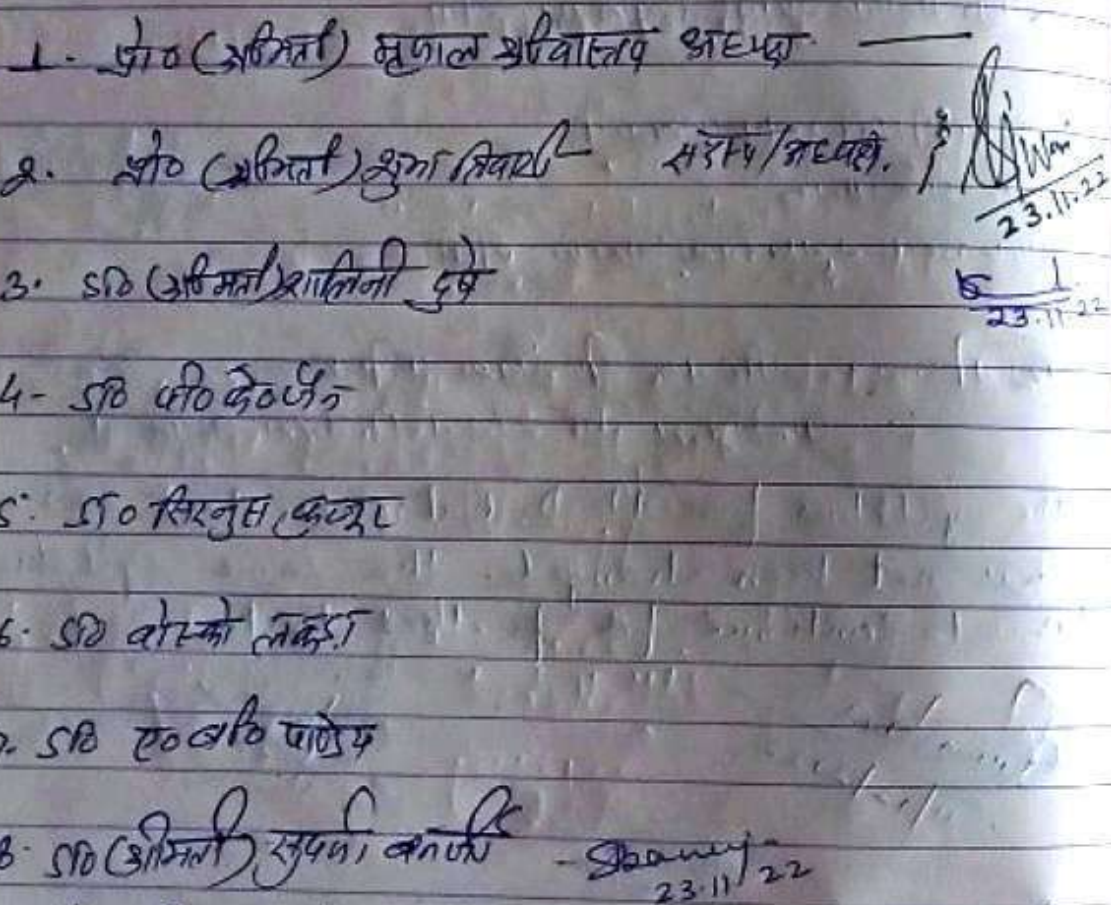 1. प्रो० (श्रीमती) मृणाल श्रीवास्तव अध्यक्ष
2. प्रो० (श्रीमती) शुभा तिवारी सदस्य/अध्यक्ष.
23.11.22
3. डॉ० (श्रीमती) शालिनी दुबे
23.11.22
4- डॉ० पी० के० जैन
5. डॉ० सिरनुस कुजूर
6. डॉ० बोस्को लकड़ा
7. डॉ० ए० बी० पाण्डेय
8. डॉ० (श्रीमती) सुपर्णा बनर्जी -
23.11.22